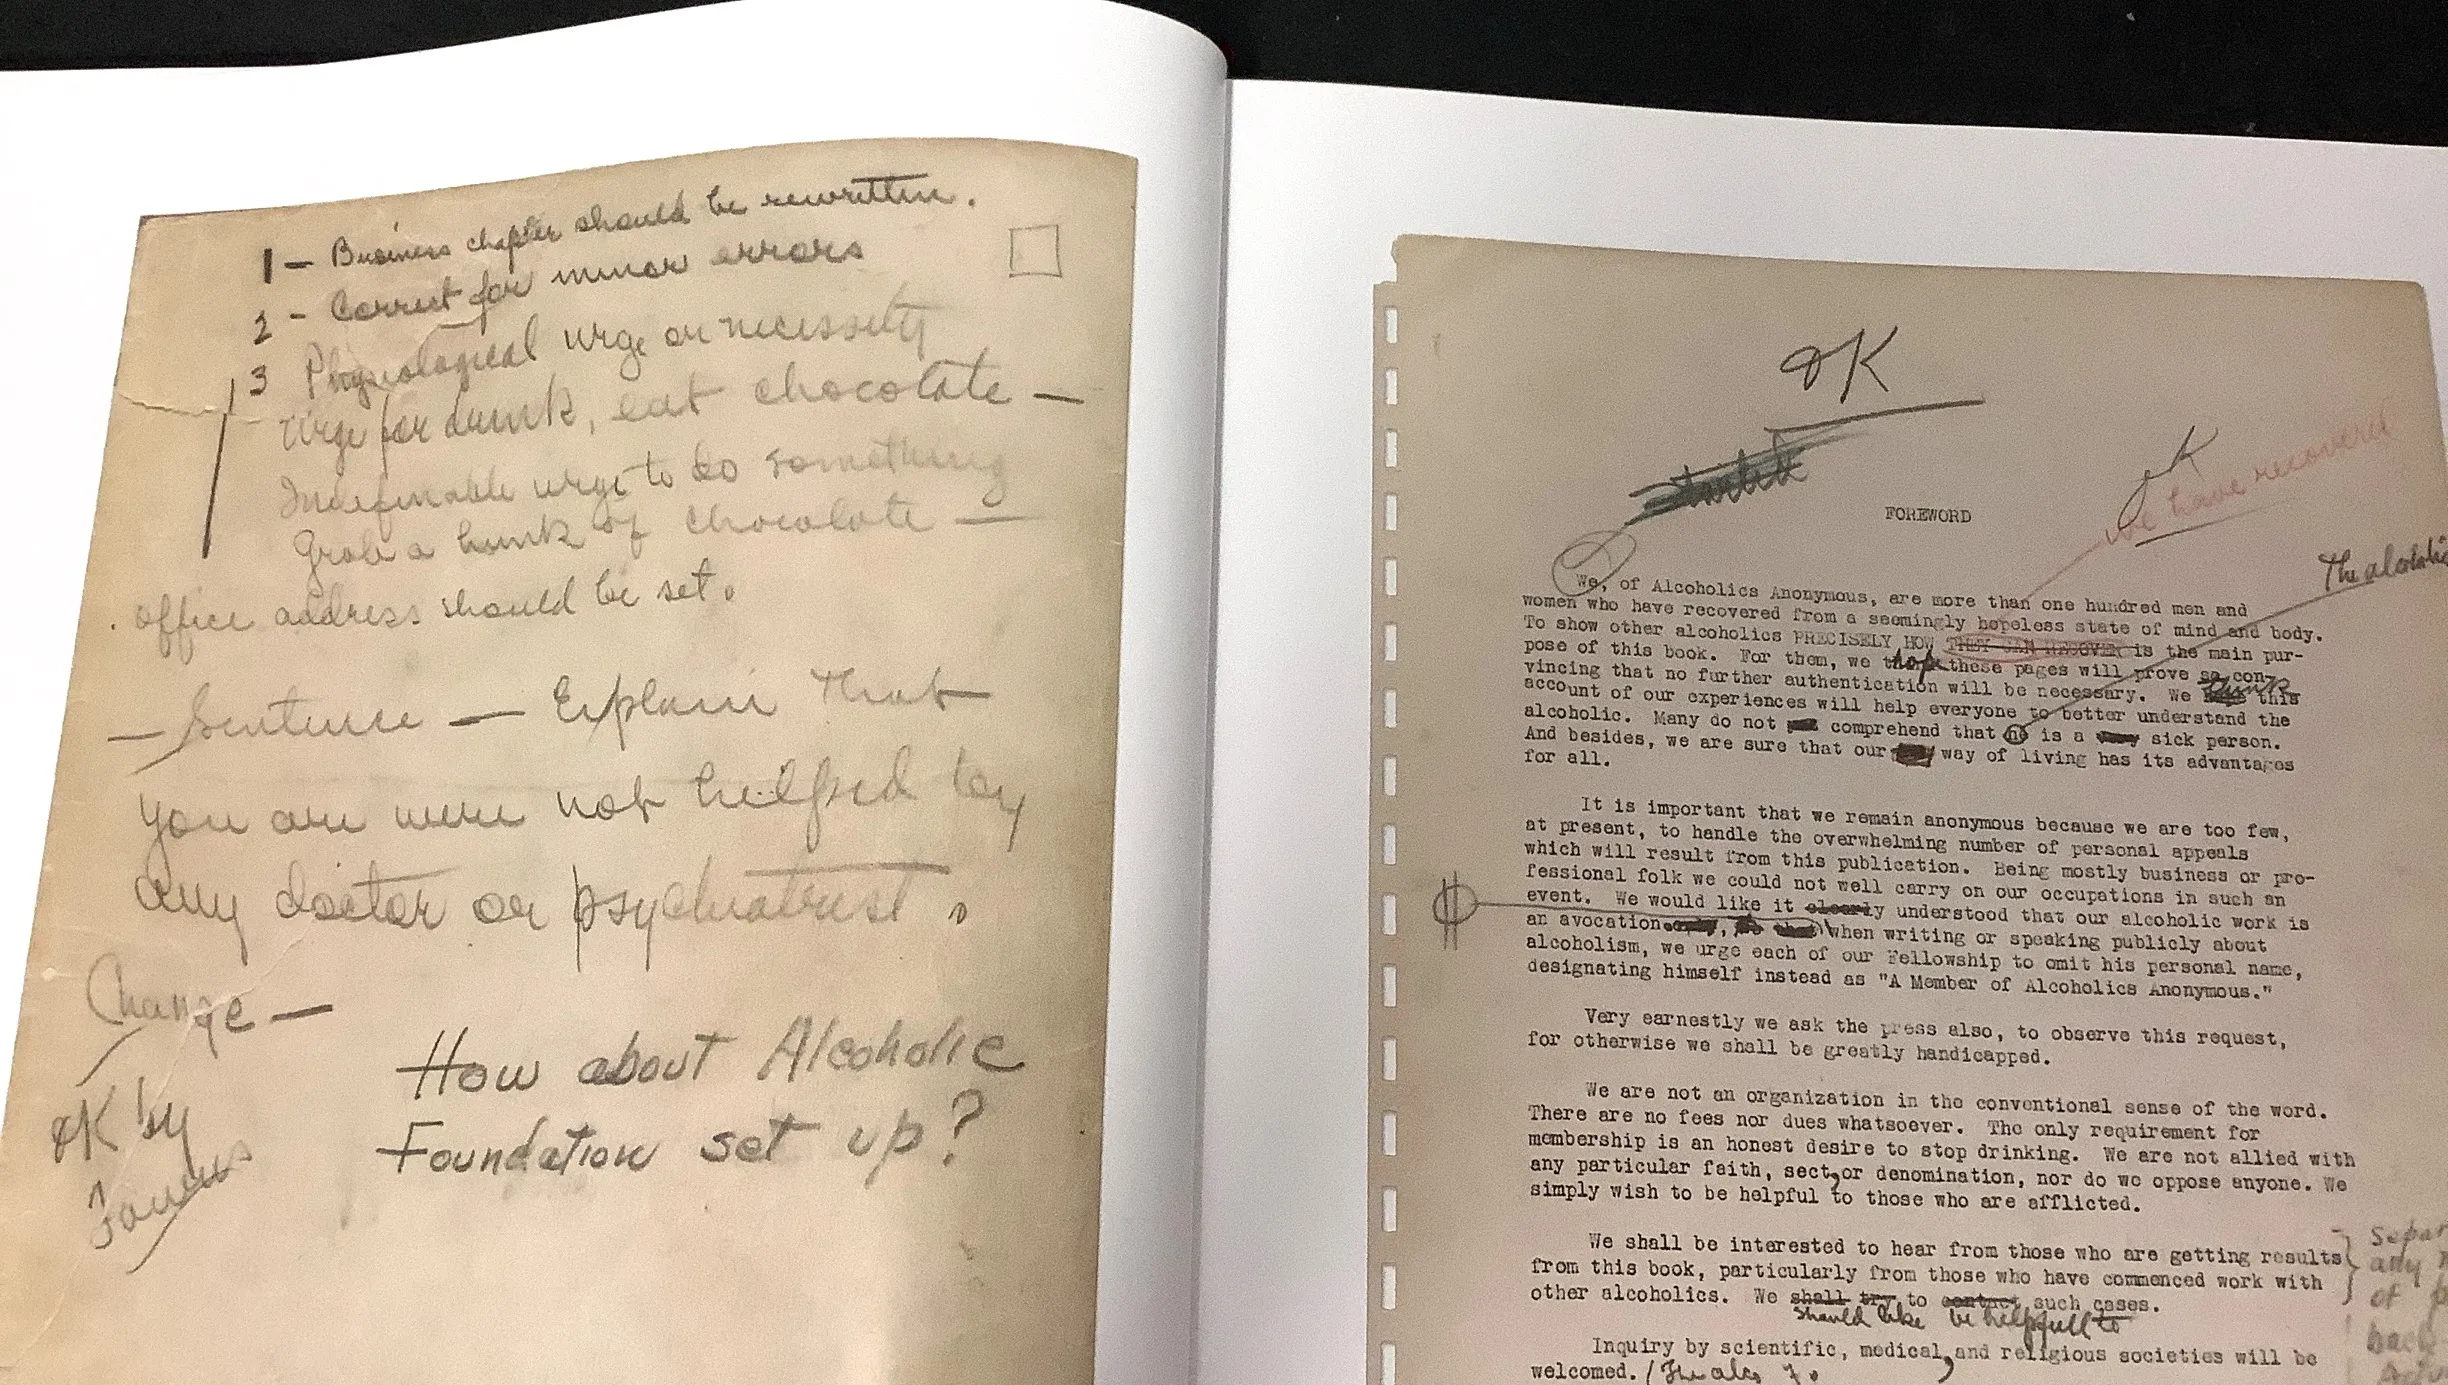 1 - Business chapter should be rewritten.
2 - Correct for minor errors
3 Physiological urge or necessity
Urge for drunk, eat chocolate —
Indefinable urge to do something
Grab a hunk of chocolate —
office address should be set.
— Sentence — Explain that
you are were not helped by
any doctor or psychiatrist.
Change —
OK by
How about Alcoholic
Foundation set up?
OK
OK
we have recovered
FOREWORD
The alcoholic
We, of Alcoholics Anonymous, are more than one hundred men and
women who have recovered from a seemingly hopeless state of mind and body.
To show other alcoholics PRECISELY HOW THEY CAN RECOVER is the main pur-
pose of this book. For them, we hope these pages will prove so con-
vincing that no further authentication will be necessary. We think this
account of our experiences will help everyone to better understand the
alcoholic. Many do not comprehend that he is a very sick person.
And besides, we are sure that our way of living has its advantages
for all.
It is important that we remain anonymous because we are too few,
at present, to handle the overwhelming number of personal appeals
which will result from this publication. Being mostly business or pro-
fessional folk we could not well carry on our occupations in such an
event. We would like it clearly understood that our alcoholic work is
an avocation when writing or speaking publicly about
alcoholism, we urge each of our Fellowship to omit his personal name,
designating himself instead as "A Member of Alcoholics Anonymous."
Very earnestly we ask the press also, to observe this request,
for otherwise we shall be greatly handicapped.
We are not an organization in the conventional sense of the word.
There are no fees nor dues whatsoever. The only requirement for
membership is an honest desire to stop drinking. We are not allied with
any particular faith, sect, or denomination, nor do we oppose anyone. We
simply wish to be helpful to those who are afflicted.
We shall be interested to hear from those who are getting results
from this book, particularly from those who have commenced work with
other alcoholics. We shall try to contact such cases.
should like be helpfull to
Inquiry by scientific, medical, and religious societies will be
welcomed.
any
of
back